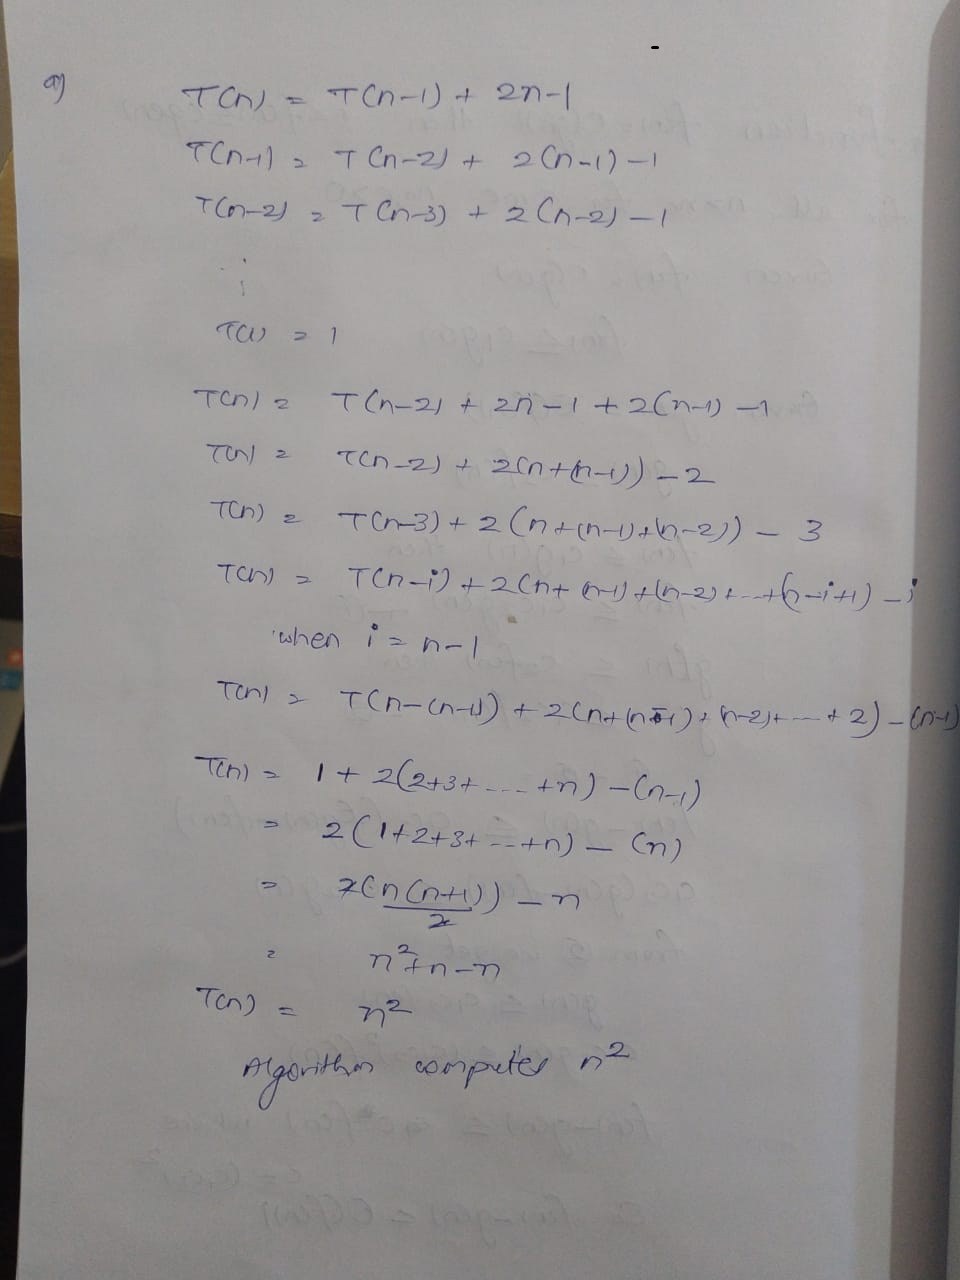 a)
T(n) = T(n-1) + 2n-1
T(n-1) = T(n-2) + 2(n-1)-1
T(n-2) = T(n-3) + 2(n-2)-1
⋮
T(1) = 1
T(n) = T(n-2) + 2n-1 + 2(n-1) -1
T(n) = T(n-2) + 2(n+(n-1)) - 2
T(n) = T(n-3) + 2(n+(n-1)+(n-2)) - 3
T(n) = T(n-i) + 2(n+(n-1)+(n-2)+...+(n-i+1) - i
when i = n-1
T(n) = T(n-(n-1)) + 2(n+(n-1)+(n-2)+...+2) - (n-1)
T(n) = 1 + 2(2+3+...+n) - (n-1)
= 2(1+2+3+...+n) - (n)
= 2(n(n+1))/2 - n
= n²+n-n
T(n) = n²
Algorithm computes n²